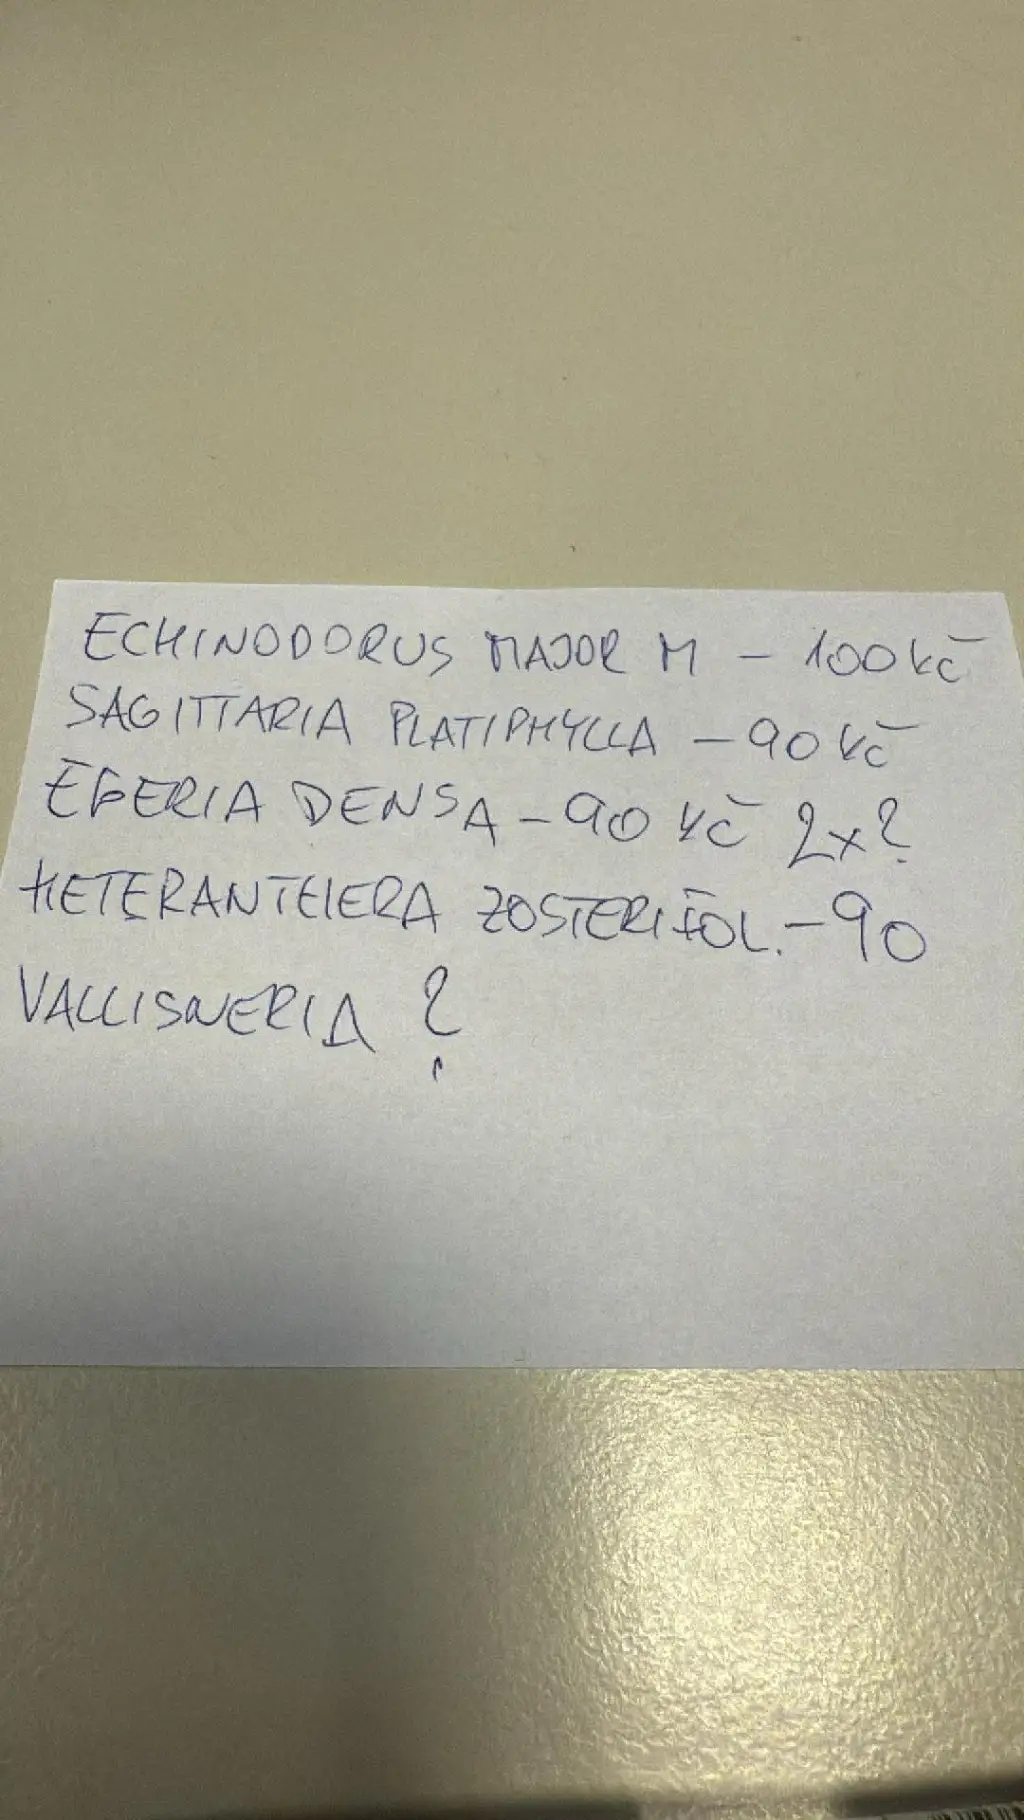 ECHINODORUS MAJOR M - 100 Kč
SAGITTARIA PLATIPHYLLA - 90 Kč
EGERIA DENSA - 90 Kč 2x?
HETERANTHERA ZOSTERIFOL. - 90
VALLISNERIA ?